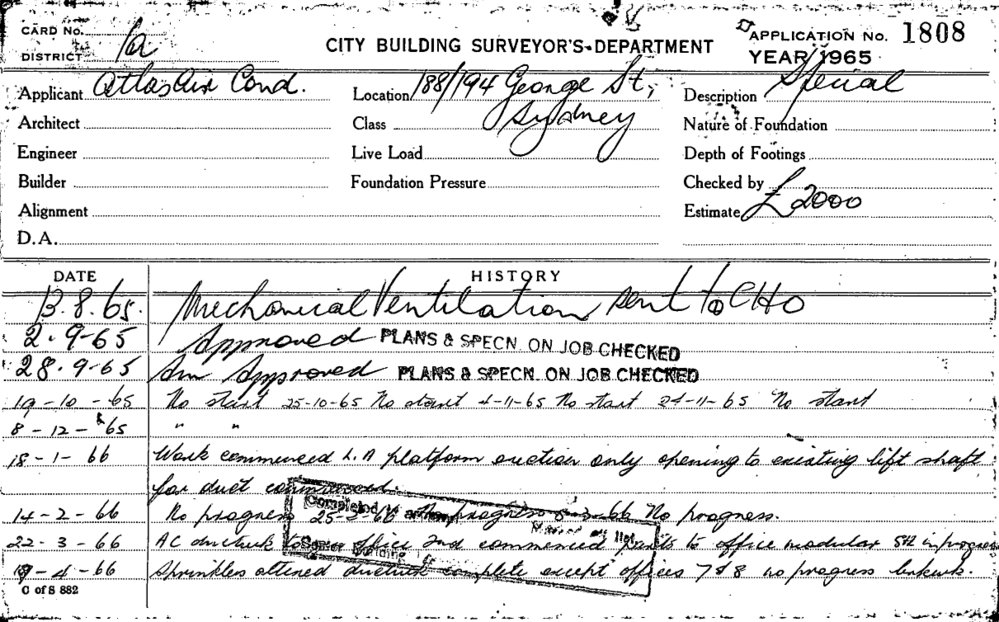 CARD No.
DISTRICT 1a
CITY BUILDING SURVEYOR'S DEPARTMENT
APPLICATION No. 1808
YEAR 1965
Applicant Atlas Air Cond.
Location 188/194 George St, Sydney
Description Special
Architect
Class
Nature of Foundation
Engineer
Live Load
Depth of Footings
Builder
Foundation Pressure
Checked by
Alignment
Estimate £2000
D.A.
DATE HISTORY
13.8.65. Mechanical Ventilation sent to CHO
2.9-65 Approved PLANS & SPECN. ON JOB CHECKED
28.9-65 Approved PLANS & SPECN. ON JOB CHECKED
19-10-65 No start 25-10-65 No start 4-11-65 No start 24-11-65 No start
8-12-65 " "
18-1-66 Work commenced platform only opening to existing lift shaft
for duct commenced.
14-2-66 No progress 25-2-66 No progress 66 No progress.
22-3-66 AC office 2nd commenced to office modular in progress
-4-66 complete except offices 7 & 8 no progress
Completed
Senior Building
C of S 882